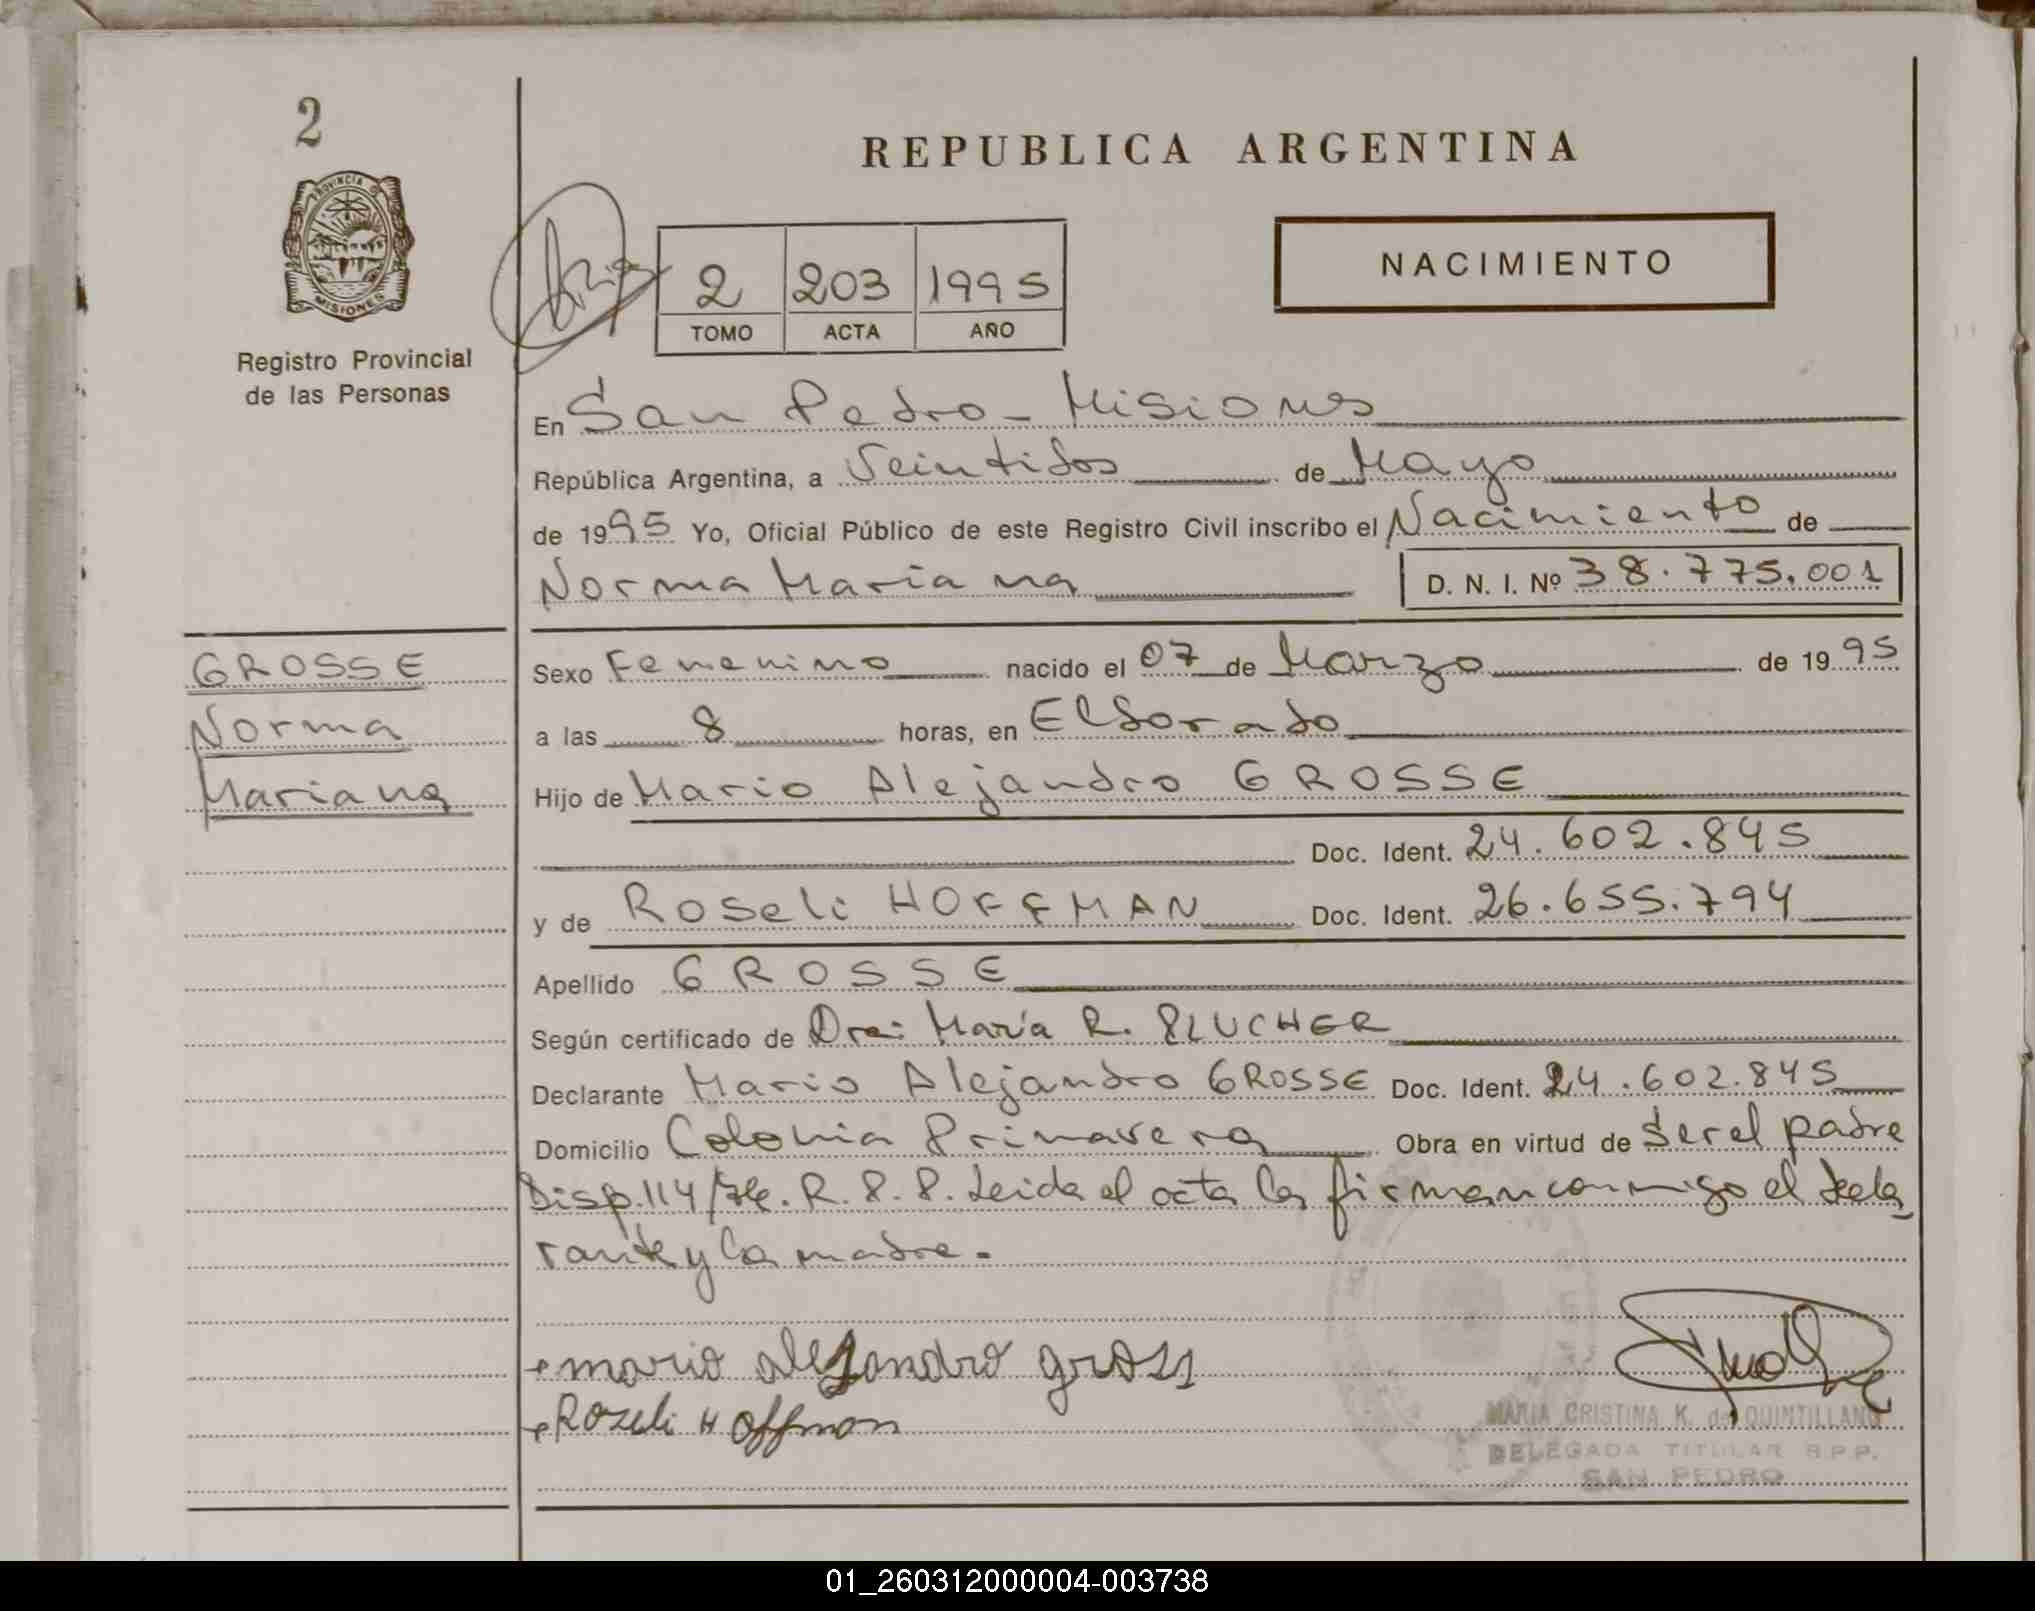 2
REPUBLICA ARGENTINA
PROVINCIA D
MISIONES
Registro Provincial
de las Personas
2 203 1995
TOMO ACTA AÑO
NACIMIENTO
En San Pedro - Misiones
República Argentina, a Veintidos de Mayo
de 1995 Yo, Oficial Público de este Registro Civil inscribo el Nacimiento de
Norma Mariana D. N. I. Nº 38.775.001
GROSSE
Norma
Mariana
Sexo Femenino nacido el 07 de Marzo de 1995
a las 8 horas, en Eldorado
Hijo de Mario Alejandro GROSSE
Doc. Ident. 24.602.845
y de Roseli HOFFMAN Doc. Ident. 26.655.794
Apellido GROSSE
Según certificado de Dra: María R. PLUCHER
Declarante Mario Alejandro GROSSE Doc. Ident. 24.602.845
Domicilio Colonia Primavera Obra en virtud de Ser el padre
Disp. 114/76. R. P. P. Leida el acta la firman conmigo el decla
rante y la madre.
mario alejandro gross
Rozeli Hoffman
MARIA CRISTINA K. de QUINTILLANO
DELEGADA TITULAR R.P.P.
SAN PEDRO
01_260312000004-003738